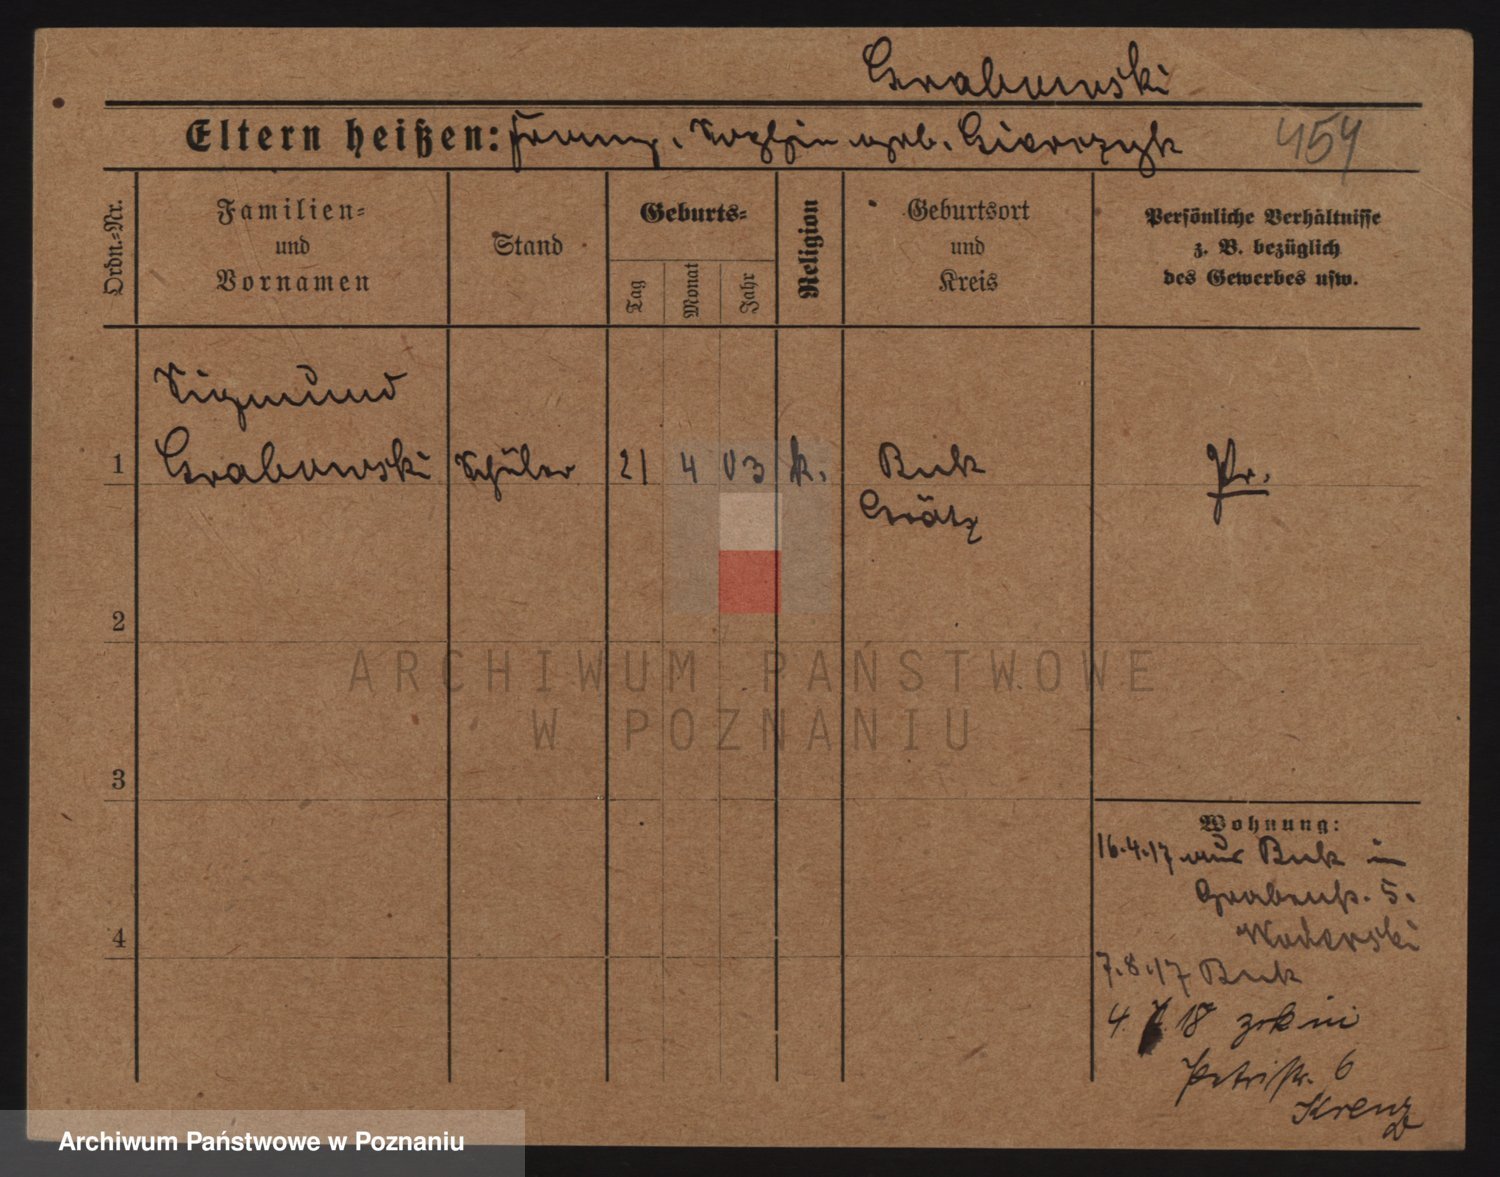 Grabowski
Eltern heißen: Franz, Sophie geb. Gierczyk
454
Ordn.-Nr.
Familien-
und
Vornamen
Stand
Geburts-
Tag
Monat
Jahr
Religion
Geburtsort
und
Kreis
Persönliche Verhältnisse
z. B. bezüglich
des Gewerbes usw.
Sigmund
1 Grabowski Schüler 21 4 03 k. Buk Pr.
Grätz
2
3
4
Wohnung:
16.4.17 aus Buk in
Grabenstr. 5.
7.8.17 Buk
4. 18 zck in
Petristr. 6
Krenz
ARCHIWUM PAŃSTWOWE
W POZNANIU
Archiwum Państwowe w Poznaniu